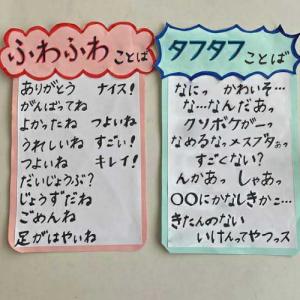 ふわふわ
ことば
ありがとう ナイス!
がんばってね
よかったね つよいね
うれしいね すごい!
つよいね キレイ!
だいじょうぶ?
じょうずだね
ごめんね
足がはやいね
タフタフ
ことば
なにっ かわいそ…
な…なんだあっ
クソボケがーっ
なめるなっメスブタぁっ
すごくない?
んかあっ しゃあっ
○○にかなしきかこ…
きたんのない
いけんってやつっス